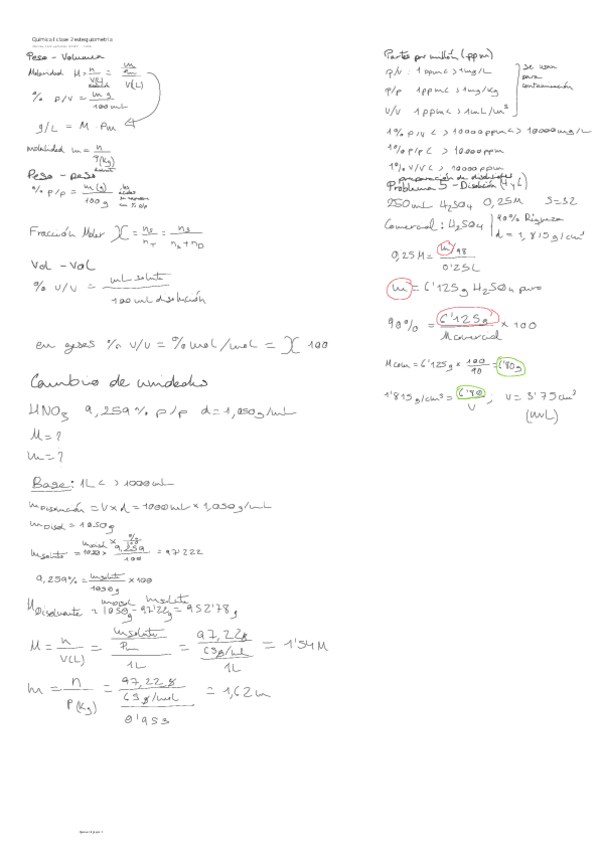 Química I clase 2 estequiometria
Peso - Volumen
Molaridad M = n / V(L) = m/Pm / V(L)
% p/v = m g / 100 mL
g/L = M · Pm
molalidad m = n / P(Kg)
Peso - peso
% p/p = m (g) / 100 g
Fracción Molar X = ns / nT = ns / ns + nD
Vol - Vol
% v/v = mL soluto / 100 ml disolución
en gases % v/v = % mol/mol = X 100
Cambio de unidades
HNO3 9,259 % p/p d = 1,050 g/mL
M = ?
m = ?
Base: 1L <> 1000 mL
m Disolución = V x d = 1000 mL x 1,050 g/mL
m Disol = 1050g
m soluto = 1050 x 9,259 / 100 = 97'222
9,259% = m soluto / 1050g x 100
m Disolvente = 1050g - 97'22g = 952'78g
M = n / V(L) = m soluto / Pm / 1L = 97,22g / 63g/mol / 1L = 1'54 M
m = n / P(Kg) = 97,22g / 63g/mol / 0'953 = 1,62 m
Partes por millón (ppm)
p/v : 1ppm <> 1mg/L
p/p 1ppm <> 1mg/Kg
v/v 1ppm <> 1mL/m³
se usan para contaminación
1% p/v <> 10000 ppm <> 10000 mg/L
1% p/p <> 10000 ppm
1% v/v <> 10000 ppm
preparación de disoluciones
Problema 5 - Disolución (4 y 6)
250 mL H2SO4 0,25M S=32
Comercial: H2SO4 90% Riqueza
d = 1,815 g/cm³
0,25M = m/98 / 0'25L
m = 6'125g H2SO4 puro
90% = 6'125g / M comercial x 100
M com = 6'125g x 100/90 = 6'80g
1'815 g/cm³ = 6'80 / V ; V = 3'75 cm³
(mL)